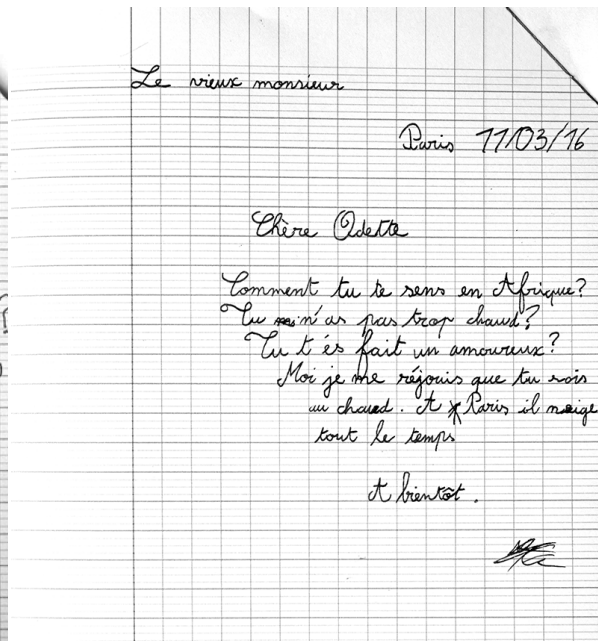 Le vieux monsieur
Paris 11/03/16
Chère Odette
Comment tu te sens en Afrique?
Tu n'as pas trop chaud?
Tu t'és fait un amoureux?
Moi je me réjouis que tu sois
au chaud. A Paris il neige
tout le temps
A bientôt.